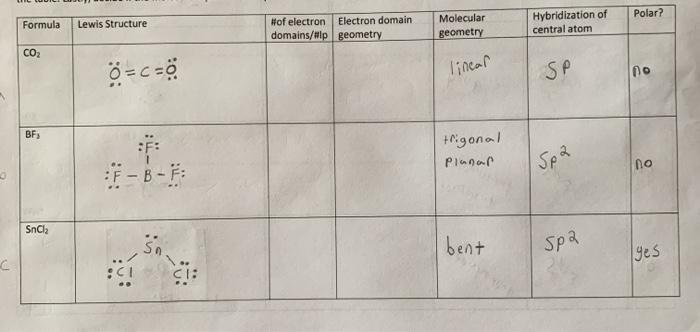 Formula
Lewis Structure
#of electron domains/#lp
Electron domain geometry
Molecular geometry
Hybridization of central atom
Polar?
CO₂
Ö=C=Ö
linear
SP
no
BF₃
:F:
:F – B – F:
trigonal
planar
Sp²
no
SnCl₂
Sn
:Cl Cl:
bent
Sp²
yes